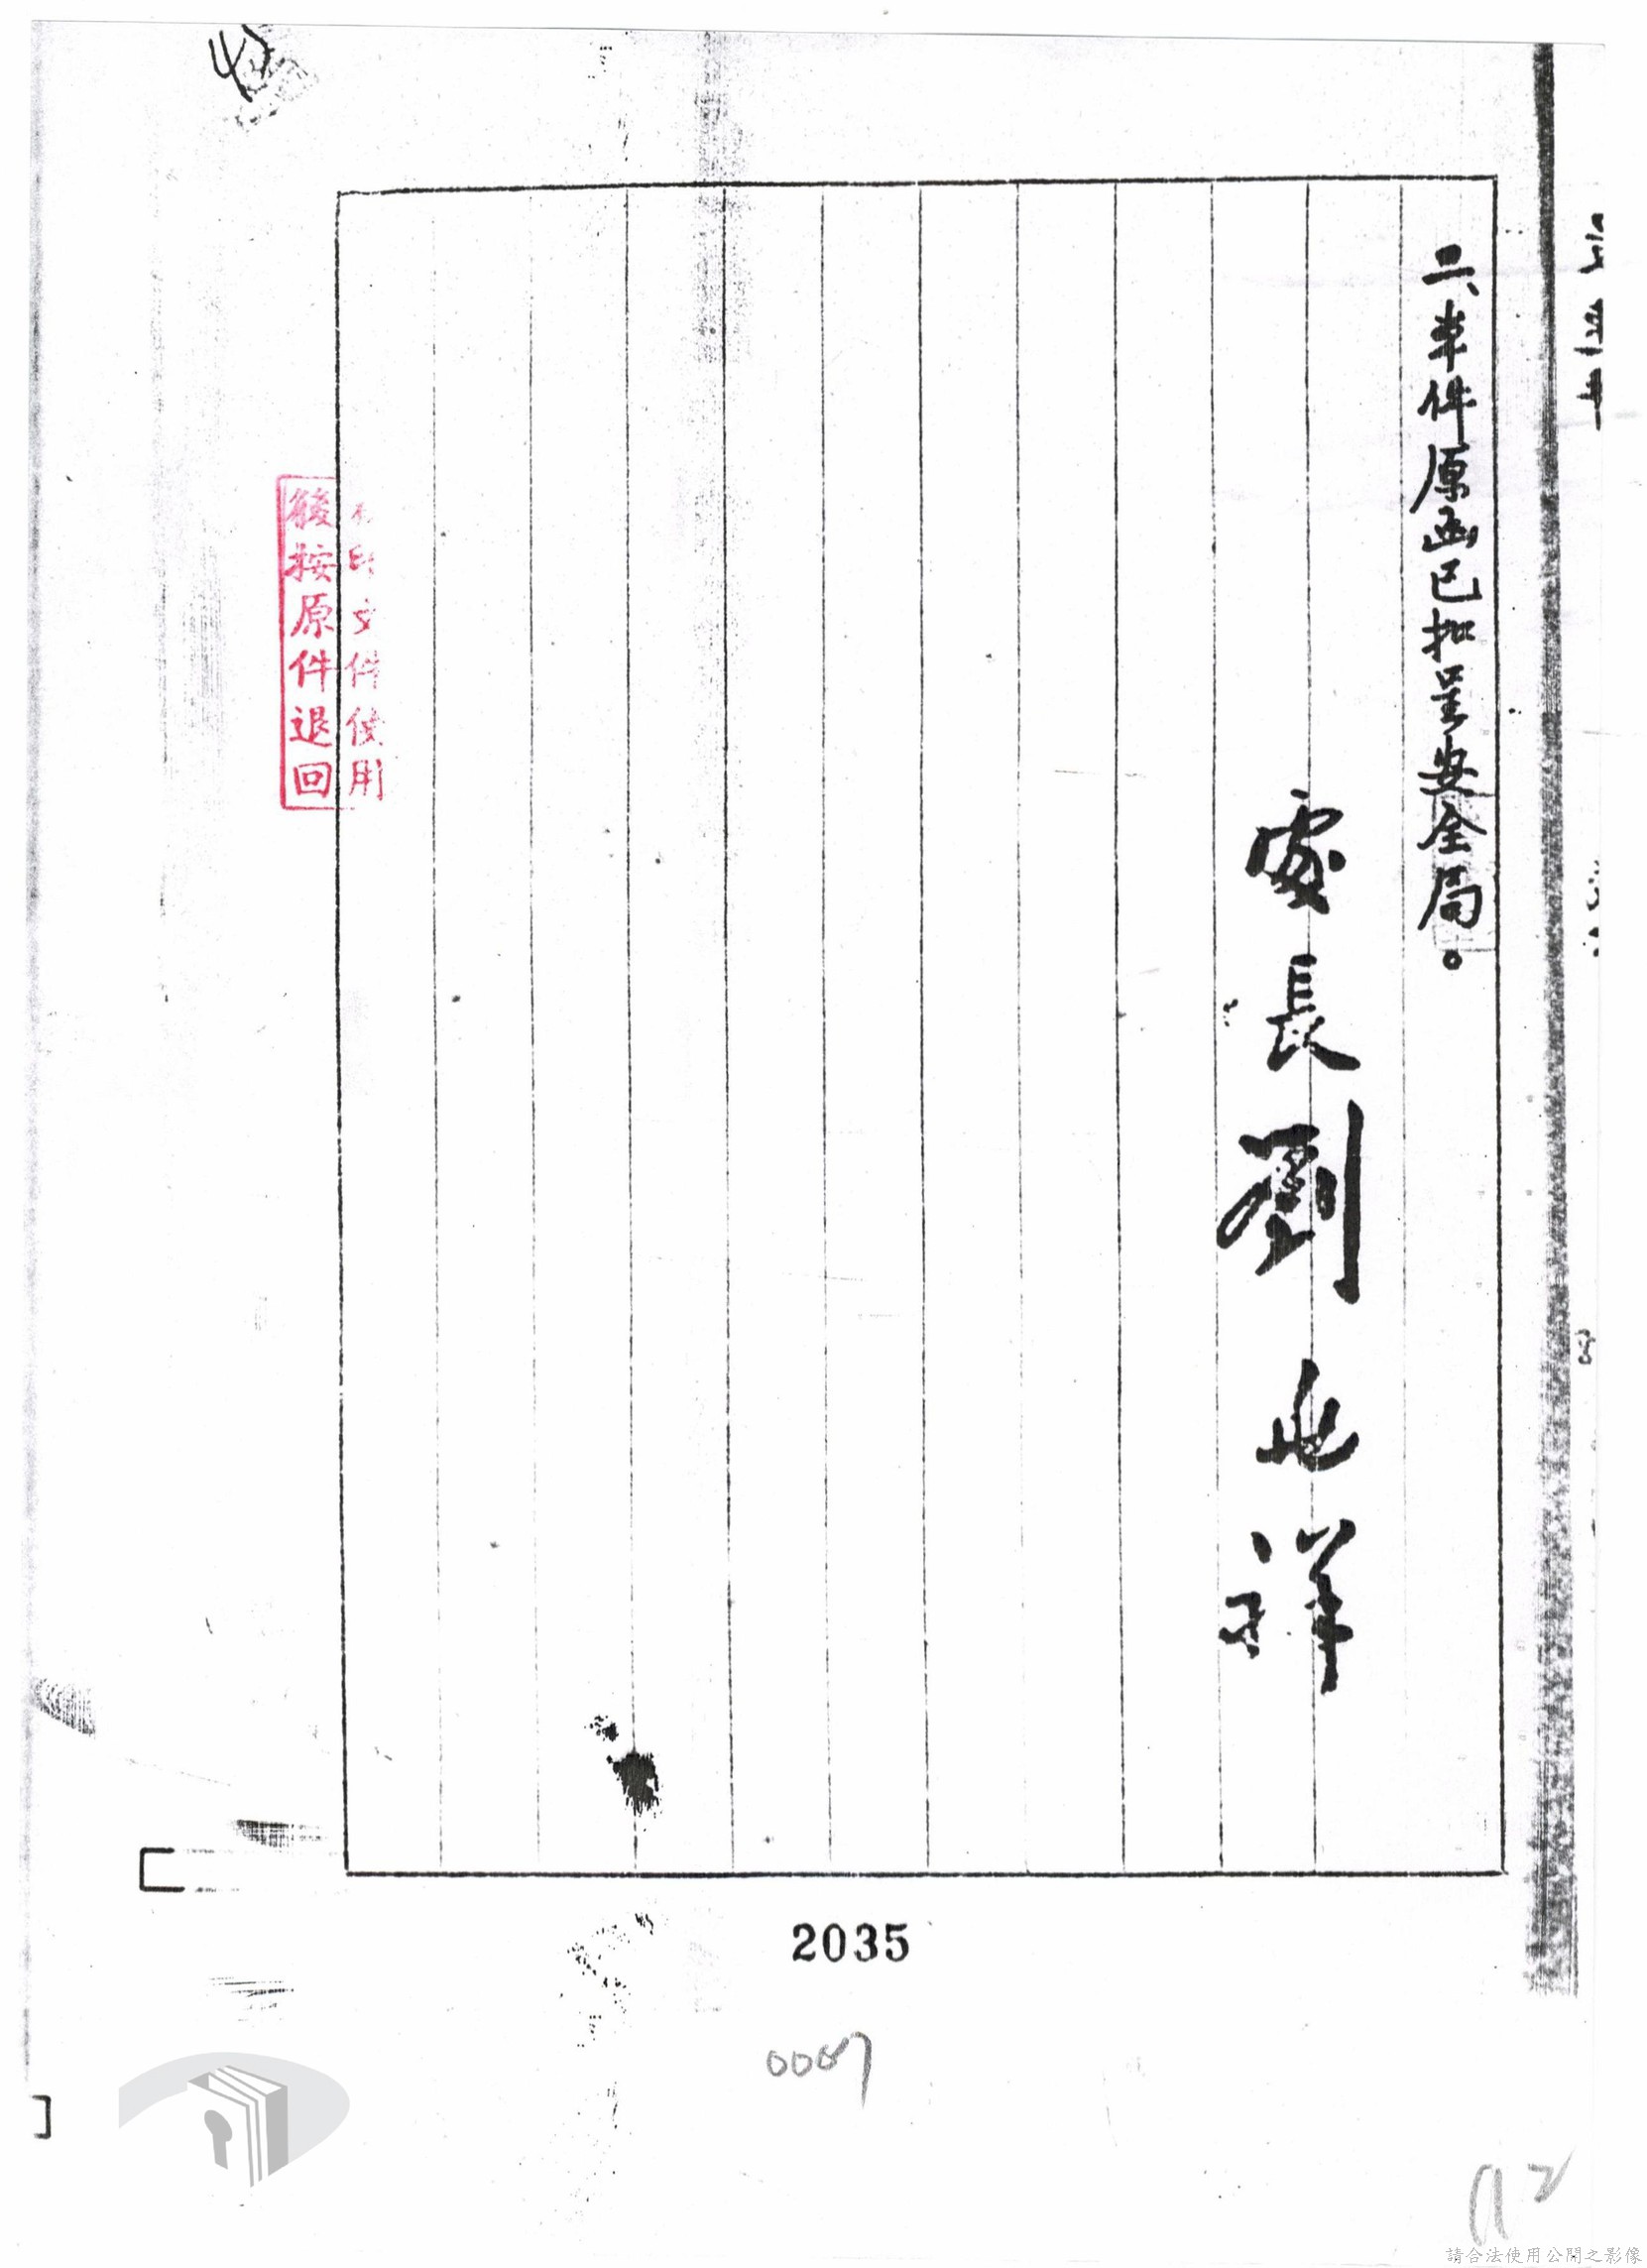 二、本件原函已扣呈安全局。
處長劉
祥
印文件使用
後按原件退回
2035
0007
請合法使用公開之影像